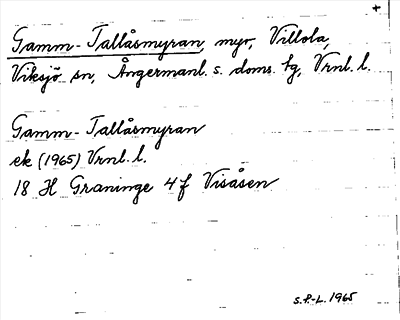 +
Gamm-Tallåsmyran, myr, Villola,
Viksjö sn, Ångermanl. s. doms. tg, Vrnl. l.
Gamm-Tallåsmyran
ek (1965) Vrnl. l.
18 H Graninge 4 f Visåsen
S.P-L. 1965